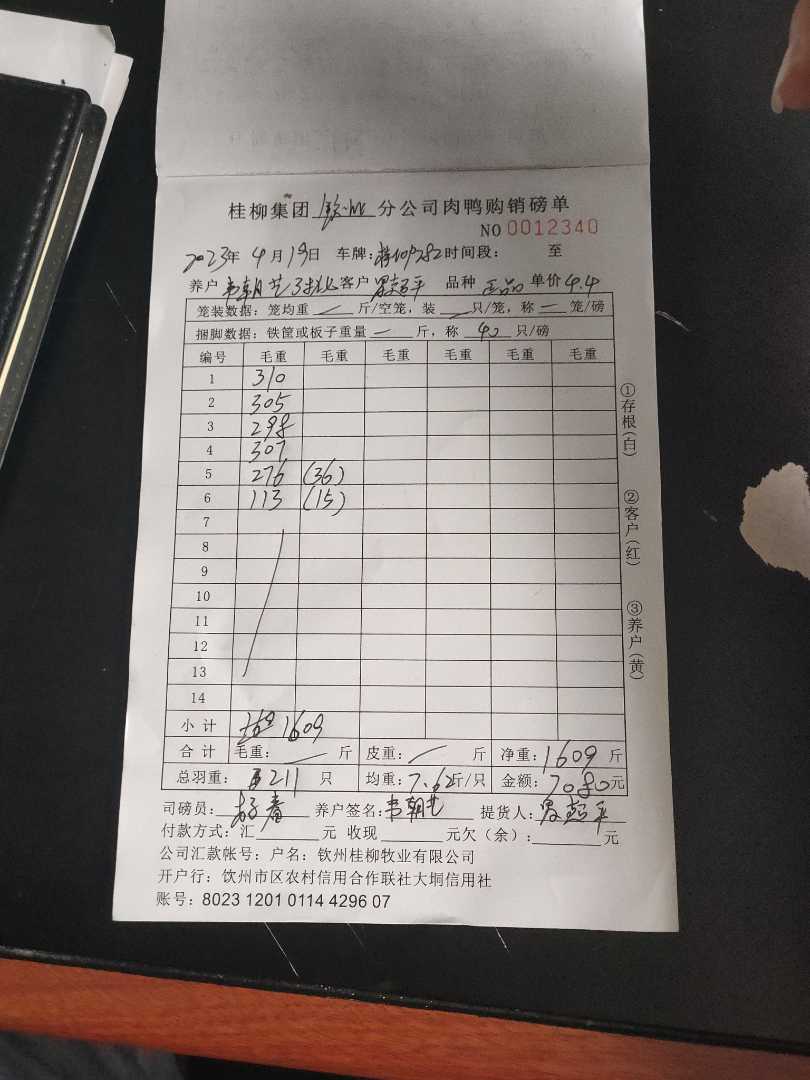 桂柳集团 分公司肉鸭购销磅单
NO 0012340
2023年 4月19日 车牌: 时间段: 至
养户 韦朝艺 客户 品种 正品 单价 4.4
笼装数据: 笼均重 一 斤/空笼, 装 一 只/笼, 称 一 笼/磅
捆脚数据: 铁筐或板子重量 一 斤, 称 40 只/磅
编号 毛重 毛重 毛重 毛重 毛重 毛重
1 310
2 305
3 298
4 307
5 276 (36)
6 113 (15)
7
8
9
10
11
12
13
14
小计 1609
合计 毛重: 斤 皮重: 斤 净重: 1609 斤
总羽重: 211 只 均重: 7.62斤/只 金额: 7080元
司磅员: 养户签名: 韦朝艺 提货人:
付款方式: 汇 元 收现 元欠(余): 元
公司汇款帐号: 户名: 钦州桂柳牧业有限公司
开户行: 饮州市区农村信用合作联社大垌信用社
账号: 8023 1201 0114 4296 07
①存根(白)
②客户(红)
③养户(黄)